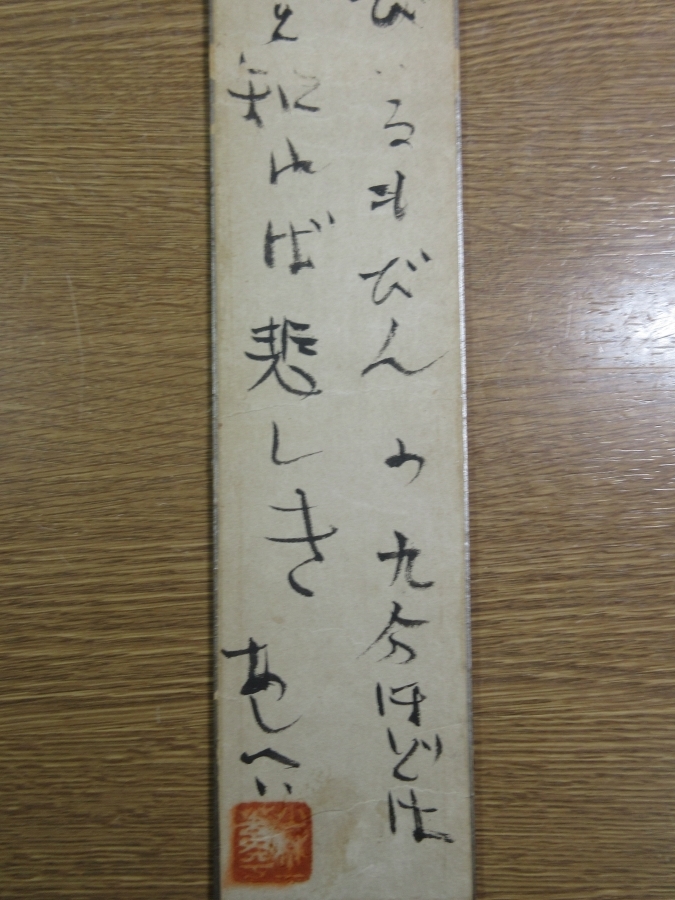 びいるもびんの九分ほどは
と知れば悲しき
あしへい